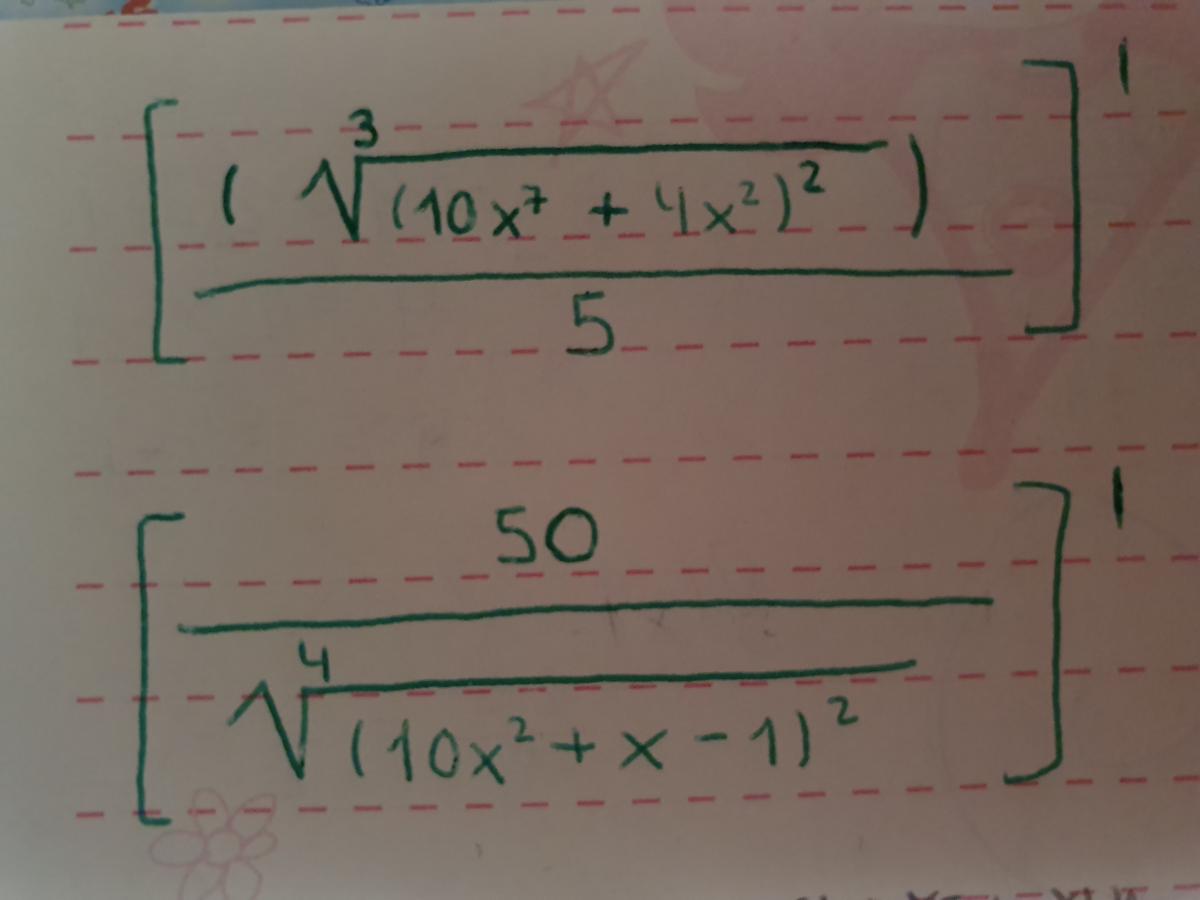 [ ( ∛((10x⁷ + 4x²)²) ) / 5 ]'
[ 50 / ∜((10x² + x - 1)²) ]'